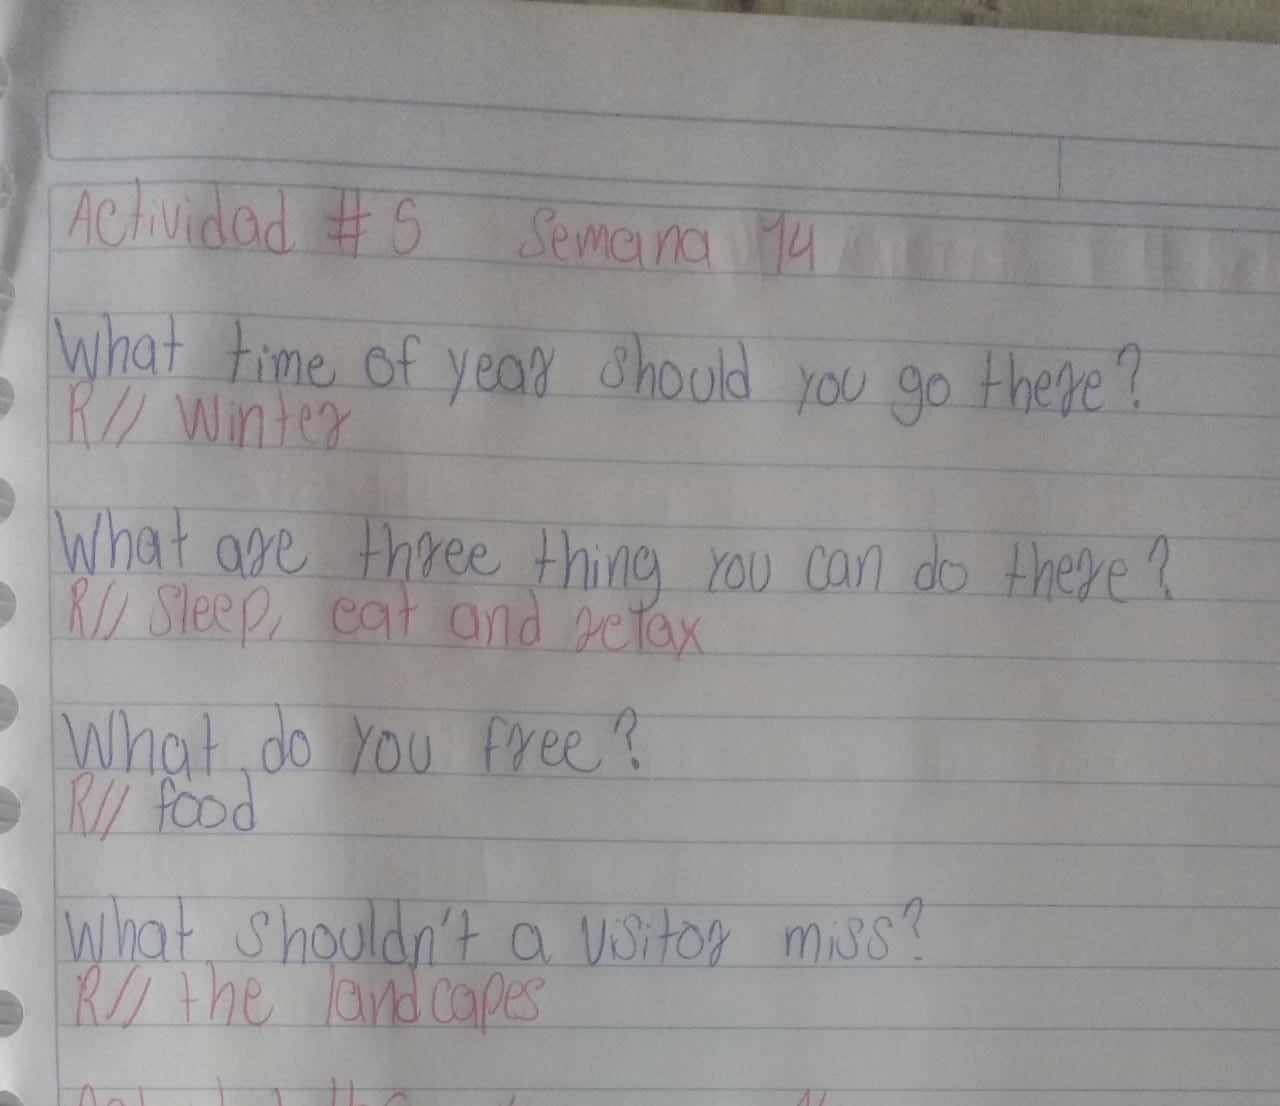 Actividad # 5 Semana 14
What time of year should you go there?
R// Winter
What are three thing you can do there?
R// Sleep, eat and relax
What do you free?
R// food
What shouldn't a visitor miss?
R// the landcapes